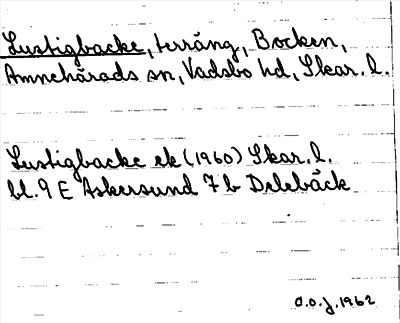 Lustigbacke, terräng, Bocken,
Amnehärads sn, Vadsbo hd, Skar. l.
Lustigbacke ek (1960) Skar. l.
bl. 9 E Askersund 7 b Delebäck
O.o.J. 1962